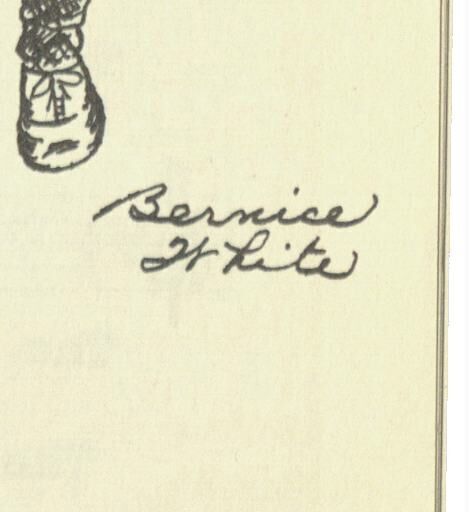 Bernice
White